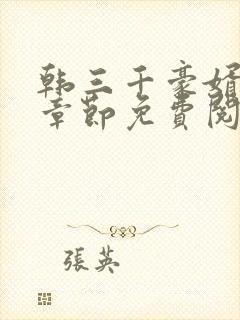 韩三千豪婿
章節免費閱
張英